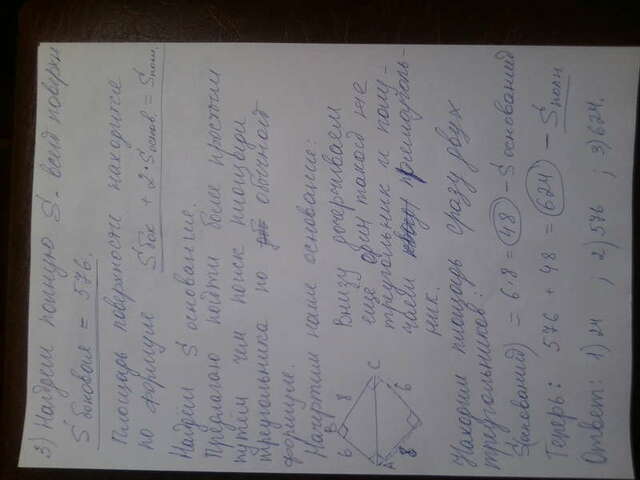 3) Найдем полную S - всей поверхн
S боковая = 576.
Площадь поверхности находится
по формуле S бок + 2·S основ. = S полн.
Найдём S основание.
Предлагаю пойти более простым
путём чем поиск площади
треугольника по обычной
формуле.
Начертим наше основание:
B
6
8
A
C
8
6
Внизу дочерчиваем
ещё один такой же
треугольник и полу-
чаем прямоуголь-
ник.
Находим площадь сразу двух
треугольников:
S(оснований) = 6·8 = 48 - S оснований
Теперь: 576 + 48 = 624 - S полн
Ответ: 1) 24 , 2) 576 ; 3) 624.